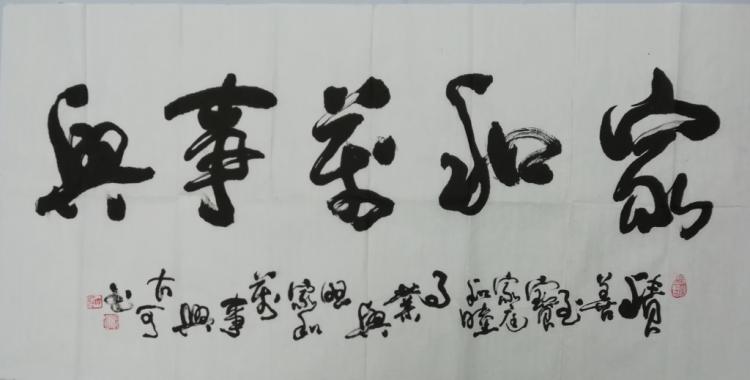 家和萬事興
積善至寶家庭和睦事業興旺家和萬事興可書